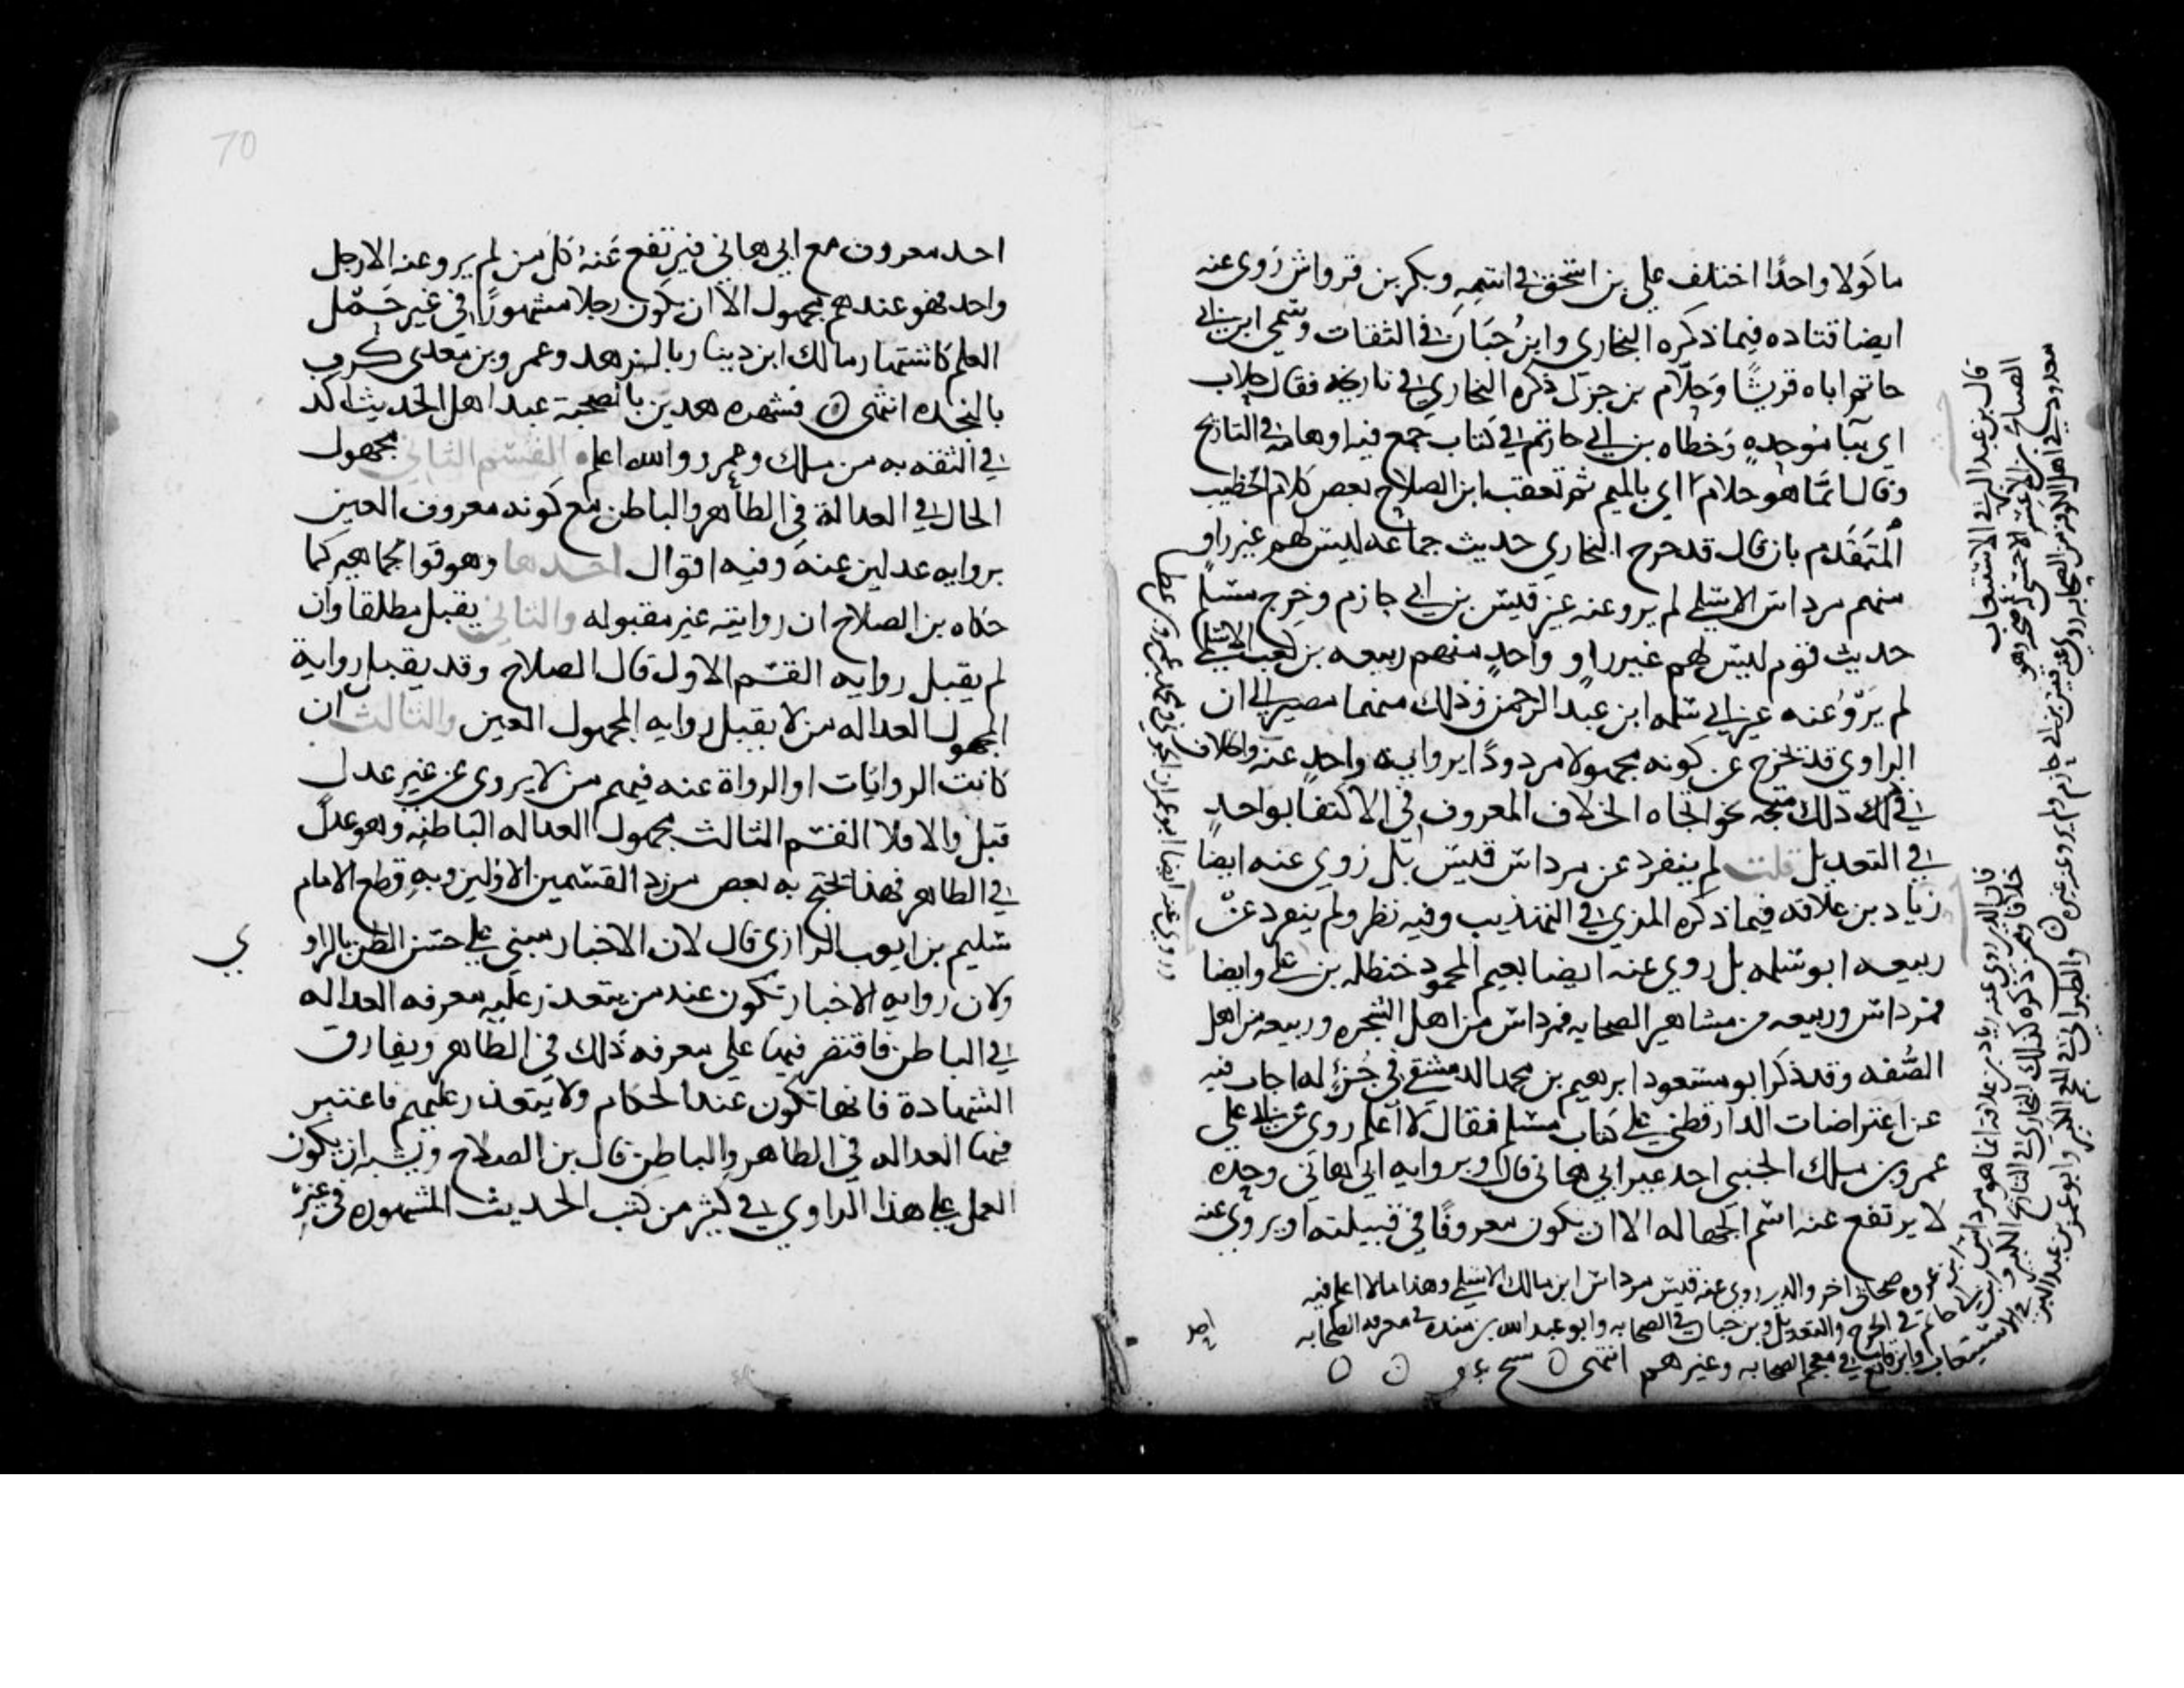 ماكولا واحدًا اختلف علي بن اسحق في اسمه وبكر بن قرواش روى عنه
ايضا قتاده فيما ذكره البخاري وابن حبان في الثقات وسمى ابن ابي
حاتم اباه قريشًا وحلام بن جزل ذكره البخاري في تاريخه فقال حلاب
اي ببا موحده وخطاه بن ابي حاتم في كتاب جمع فيه اوهامه في التاريخ
وقال انما هو حلام اي بالميم ثم تعقب ابن الصلاح بعض كلام الخطيب
المتقدم بان قال قد خرج البخاري حديث جماعه ليس لهم غير راو
منهم مرداس الاسلمي لم يرو عنه غير قيس بن ابي حازم وخرج مسلم
حديث قوم ليس لهم غير راو واحد منهم ربيعه بن كعب الاسلمي
لم يرو عنه غير ابي سلمه ابن عبد الرحمن وذلك منهما مصير الى ان
الراوي قد يخرج عن كونه مجهولا مردودًا برواية واحد عنه والخلاف
في ذلك متجه نحو اتجاه الخلاف المعروف في الاكتفا بواحد
في التعديل قلت لم ينفرد عن مرداس قيس بل روي عنه ايضا
زياد بن علاقه فيما ذكره المزي في التهذيب وفيه نظر ولم ينفرد عن
ربيعه ابو سلمه بل روي عنه ايضا نعيم المجمر وحنظله بن علي وايضا
فمرداس وربيعه من مشاهير الصحابه فمرداس من اهل الشجره وربيعه من اهل
الصُّفه وقد ذكر ابو مسعود ابرهيم بن محمد الدمشقي في جزء له اجاب فيه
عن اعتراضات الدارقطني على كتاب مسلم فقال لا اعلم روى عن ابي علي
عمرو بن ملك الجنبي احد غير ابي هاني قال وبروايه ابي هاني وحده
لا يرتفع عنه اسم الجهاله الا ان يكون معروفًا في قبيلته او يروي عنه
قال بن عبد البر في الاستيعاب
قال الذي روى عنه زياد بن علاقه انما هو مرداس
ابن عروه صحابي اخر والذي روى عنه قيس مرداس ابن مالك الاسلمي وهذا مالا اعلم فيه
خلافا وممن ذكره كذلك البخاري في التاريخ الكبير وابن ابي حاتم في الجرح والتعديل وبن حبان في الصحابه وابو عبد الله بن منده في معرفه الصحابه
والطبراني في المعجم الكبير وابو عمر بن عبد البر في الاستيعاب وابن قانع في معجم الصحابه وغيرهم انتهى
احد
احد معروف مع ابي هاني فيرتفع عنه كل من لم يرو عنه الا رجل
واحد فهو عندهم مجهول الا ان يكون رجلا مشهورًا في غير حمل
العلم كاشتهار مالك ابن دينار بالزهد وعمرو بن معدي كرب
بالنجده انتهى فشهره هذين بالصحبة عند اهل الحديث اكد
في الثقه به من ملك وعمرو والله اعلم القسم الثاني مجهول
الحال في العدالة في الظاهر والباطن مع كونه معروف العين
بروايه عدلين عنه وفيه اقوال احدها وهو قول الجماهير كما
حكاه بن الصلاح ان روايته غير مقبوله والثاني يقبل مطلقا وان
لم يقبل روايه القسم الاول قال الصلاح وقد يقبل رواية
المجهول العداله من لا يقبل روايه المجهول العين والثالث ان
كانت الروايات او الرواة عنه فيهم من لا يروى عن غير عدل
قبل والا فلا القسم الثالث مجهول العداله الباطنه وهو عدل
في الظاهر فهذا يحتج به بعض من رد القسمين الاولين وبه قطع الامام
سليم بن ايوب الرازي قال لان الاخبار مبني على حسن الظن بالراو
ي
ولان روايه الاخبار تكون عند من يتعذر عليه معرفه العداله
في الباطن فاقتصر فيها على معرفه ذلك في الظاهر ويفارق
الشهادة فانها تكون عند الحكام ولا يتعذر عليهم فاعتبر
فيها العداله في الظاهر والباطن قال بن الصلاح ويشبه ان يكون
العمل على هذا الراوي في كثير من كتب الحديث المشهوره في غير
70